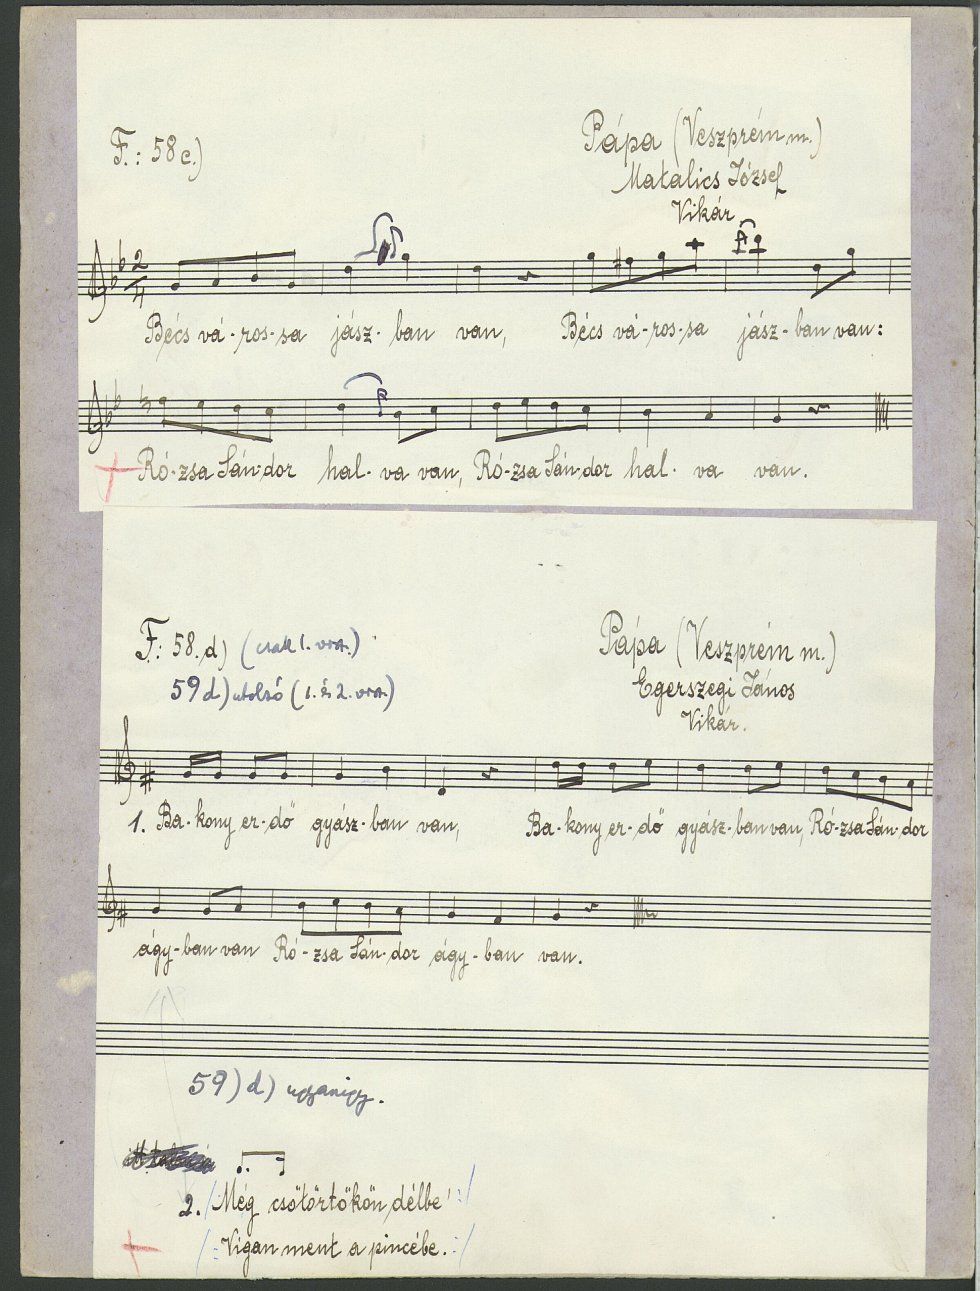 F.: 58c.)
Pápa (Veszprém m.)
Matalics József
Vikár
2
4
Bécs vá-ros-sa jász-ban van, Bécs vá-ros-sa jász-ban van:
Ró-zsa Sán-dor hal-va van, Ró-zsa Sán-dor hal-va van.
F.: 58.d) (csak 1. vrsz.)
59d) utolsó (1. és 2. vrsz.)
Pápa (Veszprém m.)
Egerszegi János
Vikár.
1. Ba-kony er-dő gyász-ban van, Ba-kony er-dő gyász-ban van, Ró-zsa Sán-dor
ágy-ban van Ró-zsa Sán-dor ágy-ban van.
59) d) ugyanígy.
2. /: Még csötörtökön délbe :/
/: Vigan ment a pincébe. :/